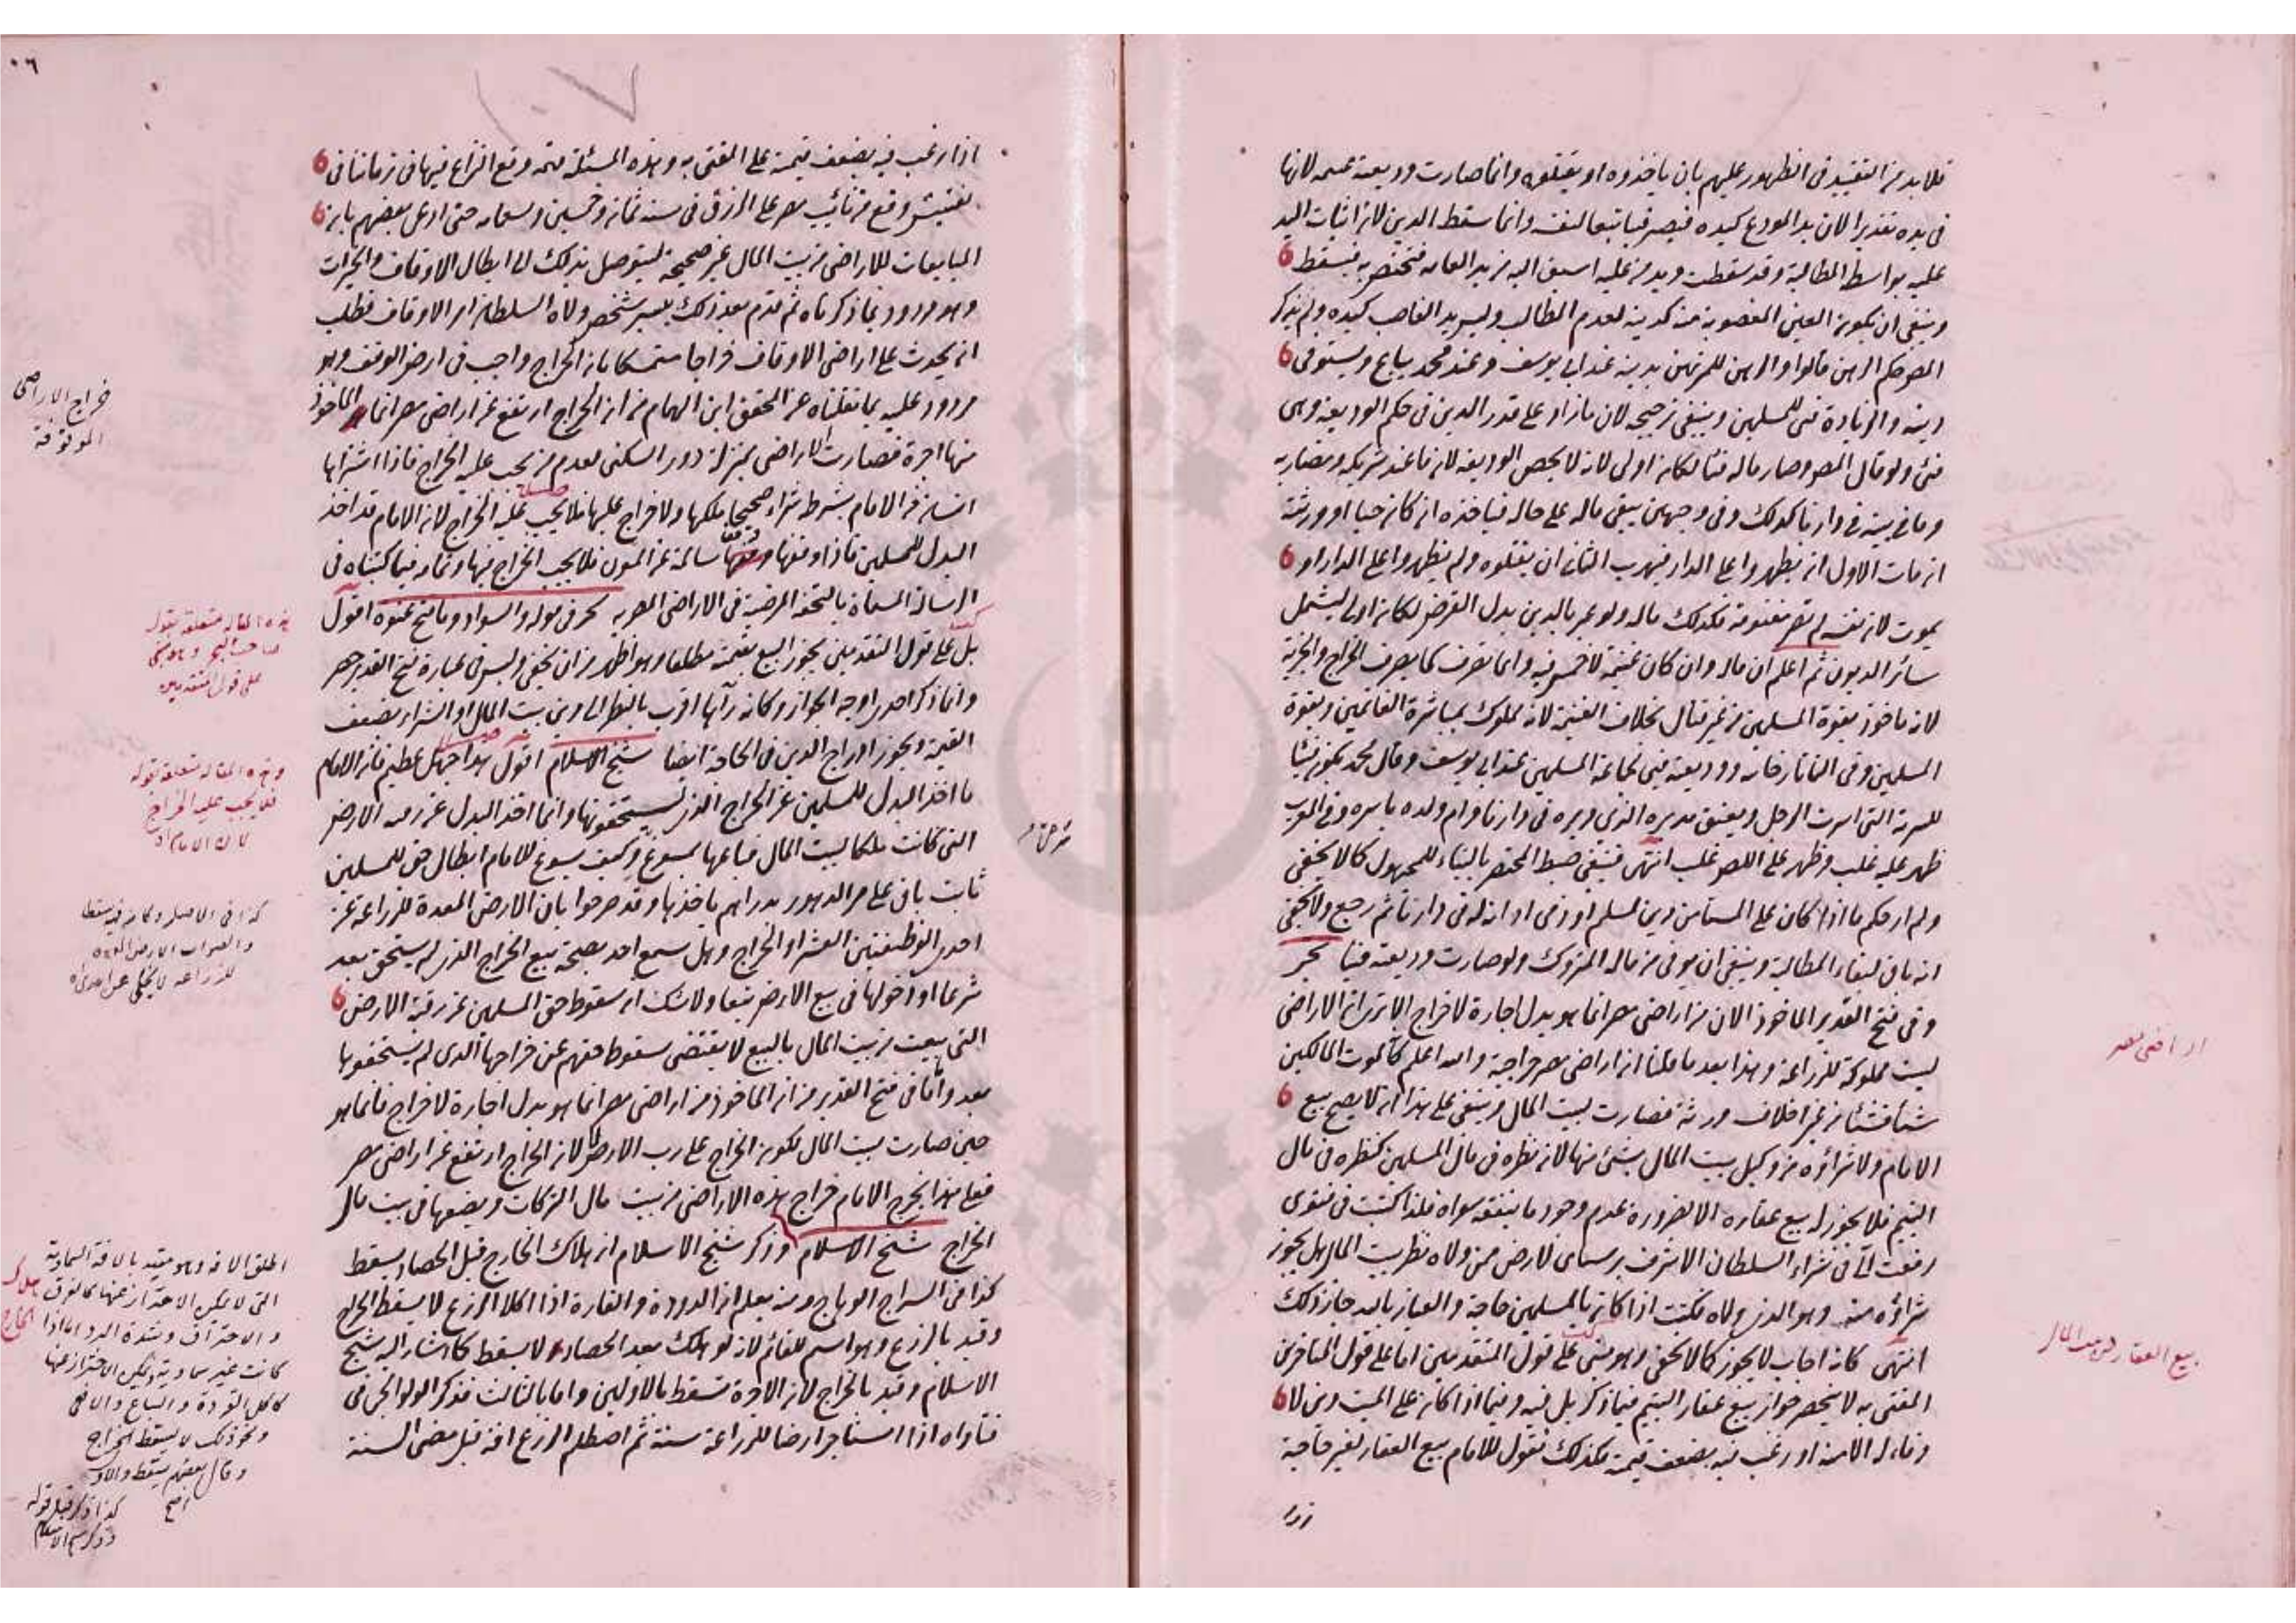 فلا بد من التقييد في الظهور عليهم بان ياخذوه او يقتلوه وانما صارت وديعته غنيمه لانها
في يده تقديرا لان يد المودع كيده فيصير فيا تبعا لنفسه وانما سقط الدين لان اثبات اليد
عليه بواسطة المطالبة وقد سقطت ويد من عليه اسبق اليه من يد العامه فتختص به فيسقط
وينبغي ان تكون العين المغصوبة منه كدينه لعدم المطالب وليس يد الغاصب كيده ولم يذكر
المص حكم الرهن قالوا والرهن للمرتهن بدينه عند ابي يوسف وعند محمد يباع ويستوفي
دينه والزيادة فئ للمسلمين وينبغي ترجيحه لان ما زاد على قدر الدين في حكم الوديعه وهي
فئ ولو قال المص وصار ماله فيا لكان اولى لانه لا يخص الوديعه لان ما عند شريكه ومضاربه
وما في بيته في دارنا كذلك وفي وجهين يبقى ماله على حاله فياخذه ان كان حيا او ورثته
ان مات الاول ان يظهروا على الدار فيهرب الثاني ان يقتلوه ولم يظهروا على الدار او
يموت لان نفسه لم تصر مغنومة فكذلك ماله ولو عبر بالدين بدل القرض لكان اولى ليشمل
سائر الديون ثم اعلم ان ماله وان كان غنيمة لا خمس فيه وانما يصرف كما يصرف الخراج والجزية
لانه ماخوذ بقوة المسلمين من غير قتال بخلاف الغنيمة لانه مملوك بمباشرة الغانمين وبقوة
المسلمين وفي التاتارخانيه ووديعته فئ لجماعة المسلمين عند ابي يوسف وقال محمد تكون فيئا
للسرية التي اسرت الرجل ويعتق مدبره الذي دبره في دارنا وام ولده باسره وفي المغرب
ظهر عليه غلب وظهر على اللص غلب انتهى فينبغي ضبط المختصر بالبناء للمجهول كما لا يخفى
ولم ار حكم ما اذا كان على المستامن دين لمسلم او ذمى ادانه له في دارنا ثم رجع ولا يخفى
انه باق لبقاء المطالبة وينبغي ان يوفى من ماله المتروك ولو صارت وديعته فيئا بحر
وفي فتح القدير الماخوذ الان من اراضي مصر انما هو بدل اجارة لا خراج الا ترى ان الاراضي
ليست مملوكة للزراعة وهذا بعد ما قلنا ان اراضي مصر خراجية والله اعلم كانه لموت المالكين
شيأ فشيئا من غير اخلاف ورثة فصارت لبيت المال وينبغي على هذا انه لا يصح بيع
الامام ولا شراؤه من وكيل بيت المال بشئ منها لان نظره في مال المسلمين كنظره في مال
اليتيم فلا يجوز له بيع عقاره الا لضرورة عدم وجود ما ينفقه سواه فلذا كتبت في فتوى
رفعت الي في شراء السلطان الاشرف برسباي لارض ممن ولاه نظر بيت المال هل يجوز
شراؤه منه وهو الذي ولاه فكتبت اذا كان بالمسلمين حاجة والعياذ بالله جاز ذلك
انتهى كانه اجاب لا يجوز كما لا يخفى وهو مبني على قول المتقدمين اما على قول المتاخرين
المفتى به لا ينحصر جواز بيع عقار اليتيم فيما ذكر بل فيه وفيما اذا كان على الميت دين لا
وفاء له الا منه او رغب فيه بضعف قيمته فكذلك نقول للامام بيع العقار لغير حاجة
اذا
اراضي مصر
بيع العقار من بيت المال
اذا رغب فيه بضعف قيمته على المفتى به وهذه المسئلة مهمه وقع النزاع فيها في زماننا في
تفتيش وقع من نائب مصر على الرزق في سنة ثمان وخمسين وتسعمايه حتى ادعى بعضهم بان
المبايعات للاراضي من بيت المال غير صحيحة ليتوصل بذلك الى ابطال الاوقاف والخيرات
وهو مردود بما ذكرناه ثم قدم بعد ذلك بيسير شخص ولاه السلطان امر الاوقاف فطلب
ان يحدث على اراضي الاوقاف خراجا متمسكا بان الخراج واجب في ارض الوقف وهو
مردود عليه بما نقلناه عن المحقق ابن الهمام من ان الخراج ارتفع عن اراضي مصر انما الماخوذ
منها اجرة فصارت الاراضي بمنزلة دور السكنى لعدم من يجب عليه الخراج فاذا اشتراها
انسان من الامام بشرطه شراء صحيحا ملكها ولا خراج عليها فلا يجب عليه الخراج لان الامام قد اخذ
البدل للمسلمين فاذا وقفها وقفها سالمة عن المون فلا يجب الخراج فيها وتمامه فيما كتبناه في
الرسالة المسماة بالتحفة المرضية في الاراضي المصريه بحر في قوله والسواد وما فتح عنوة اقول
بل على قول المتقدمين يجوز البيع بقيمته مطلقا وهو اظهر من ان يخفى وليس في عبارة فتح القدير حصر
وانما ذكر احدى اوجه الجواز وكانه رآها اقرب بالنظر الى وين بيت المال او الشراء بضعف
القيمة ويجوز ادراج الدين في الحاجة ايضا شيخ الاسلام اقول هذا جهل عظيم فان الامام
ما اخذ البدل للمسلمين عن الخراج الذي يستحقونها وانما اخذ البدل عن رقبة الارض
التي كانت ملكا لبيت المال فباعها بمسوغ وكيف يسوغ للامام ابطال حق للمسلمين
ثابت باق على مر الدهور بدراهم ياخذها وقد صرحوا بان الارض المعدة للزراعة عن
احدى الوظيفتين العشر او الخراج وهل سمع احد بصحة بيع الخراج الذي لم يستحق بعد
شرعا او دخولها في بيع الارض تبعا ولا شك ان سقوط حق المسلمين عن رقبة الارض
التي بيعت من بيت المال بالبيع لا يقتضي سقوط حقهم عن خراجها الذي لم يستحقوها
بعد واما في فتح القدير من ان الماخوذ من اراضي مصر انما هو بدل اجارة لا خراج فانما هو
حين صارت بيت المال لكون الخراج على رب الارض لا لان الخراج ارتفع عن اراضي مصر
فعلى هذا يخرج الامام خراج هذه الاراضي من بيت مال الزكات ويضعها في بيت مال
الخراج شيخ الاسلام وذكر شيخ الاسلام ان هلاك الخارج قبل الحصاد يسقط
كذا في السراج الوهاج ومنه يعلم ان الدودة والفارة اذا اكلا الزرع لا يسقط الخراج
وقيد بالزرع وهو اسم للقائم لانه لو هلك بعد الحصاد لا يسقط كما اشار اليه شيخ
الاسلام وقيد بالخراج لان الاجرة تسقط بالاولين واما بالثالث فذكر الولوالجي في
فتاواه اذا استاجر ارضا للزراعة سنة ثم اصطلم الزرع افة قبل مضي السنة
خراج الاراضي
الموقوفة
هذه المقاله متعلقه بقوله
صاحب البحر وهو مبني
على قول المتقدمين
وهذه المقاله متعلقه بقوله
فلا يجب عليه الخراج
لان الامام قد
كذا في الاصل وكانه فيه سقط
والصواب الارض المعده
للزراعه لا يخلى عن احدى
اطلق الافه وهو مقيد بالافة السماوية
التي لا يمكن الاحتراز عنها كالغرق
والاحتراق وشدة البرد اما اذا
كانت غير سماوية ويمكن الاحتراز عنها
كاكل القردة والسباع والافاعي
ونحو ذلك لا يسقط الخراج
وقال بعضهم يسقط والاول
اصح
كذا ذكر قبل قوله
وذكر شيخ الاسلام
هلاك
الخارج